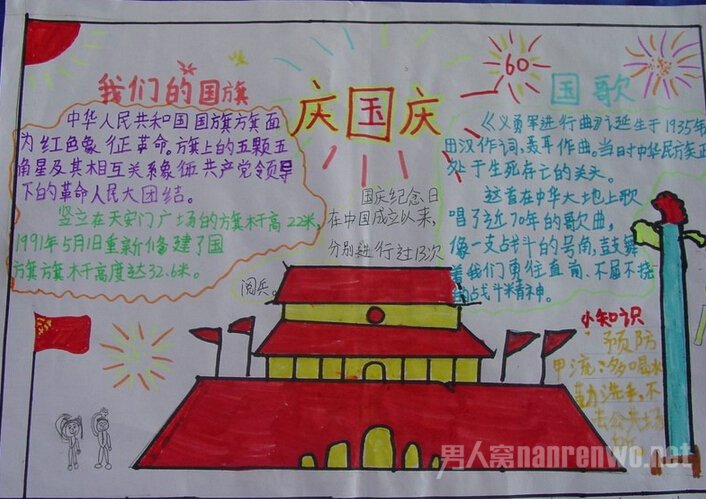 庆国庆
60
我们的国旗
中华人民共和国国旗旗面
为红色象征革命,旗上的五颗五
角星及其相互关系象征共产党领导
下的革命人民大团结。
竖立在天安门广场的旗杆高22米,
1991年5月1日重新修建了国
旗旗杆高度达32.6米。
国庆纪念日
在中国成立以来,
分别进行过13次
阅兵。
国歌
《义勇军进行曲》诞生于1935年
田汉作词,聂耳作曲。当时中华民族正
处于生死存亡的关头。
这首在中华大地上歌
唱了近70年的歌曲,
像一支战斗的号角,鼓舞
着我们勇往直前,不屈不挠
的战斗精神。
小知识
预防
甲流:多喝水
勤洗手,不
去公共场
男人窝nanrenwo.net